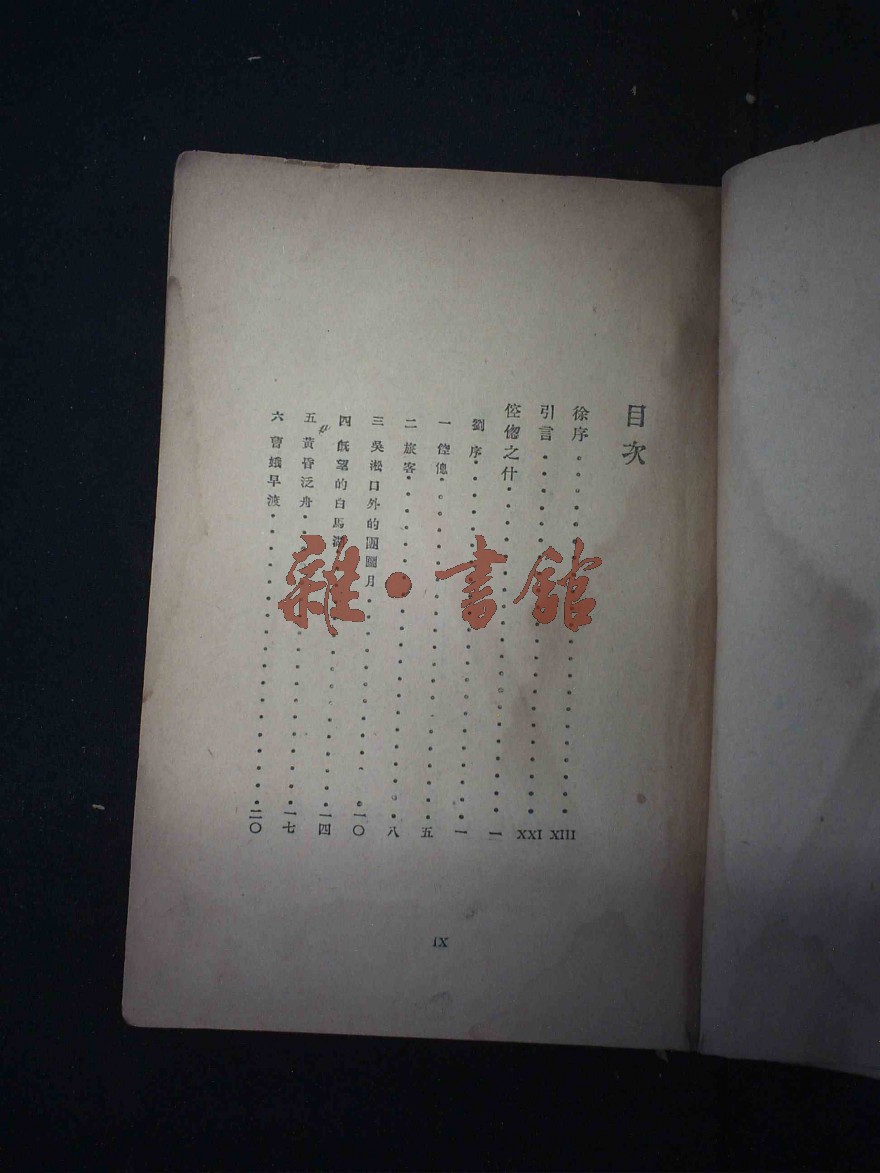 目次
徐序……XIII
引言……XXI
倥傯之什……一
劉序……一
一 倥傯……五
二 旅客……八
三 吳淞口外的團圞月……一〇
四 旣望的白馬湖……一四
五 黃昏泛舟……一七
六 曹娥早渡……二〇
IX
雜·書館